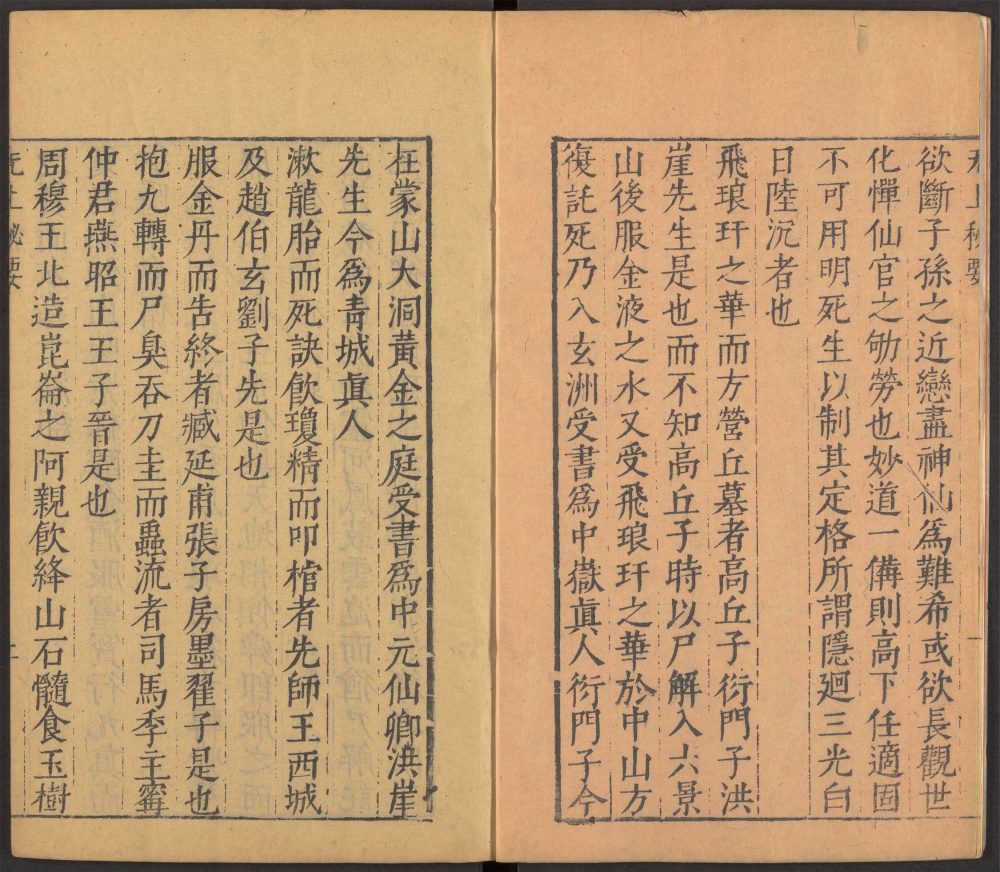 无上秘要
欲斷子孫之近戀盡神仙爲難希或欲長觀世
化憚仙官之劬勞也妙道一備則高下任適固
不可用明死生以制其定格所謂隱廻三光白
日陸沉者也
飛琅玕之華而方營丘墓者高丘子衍門子洪
崖先生是也而不知高丘子時以尸解入六景
山後服金液之水又受飛琅玕之華於中山方
復託死乃入玄洲受書爲中嶽眞人衍門子今
在蒙山大洞黃金之庭受書爲中元仙卿洪崖
先生今爲青城眞人
漱龍胎而死訣飲瓊精而叩棺者先師王西城
及趙伯玄劉子先是也
服金丹而告終者臧延甫張子房墨翟子是也
抱九轉而尸臭吞刀圭而蟲流者司馬季主甯
仲君燕昭王王子晉是也
周穆王北造崑崙之阿親飲絳山石髓食玉樹
无上秘要